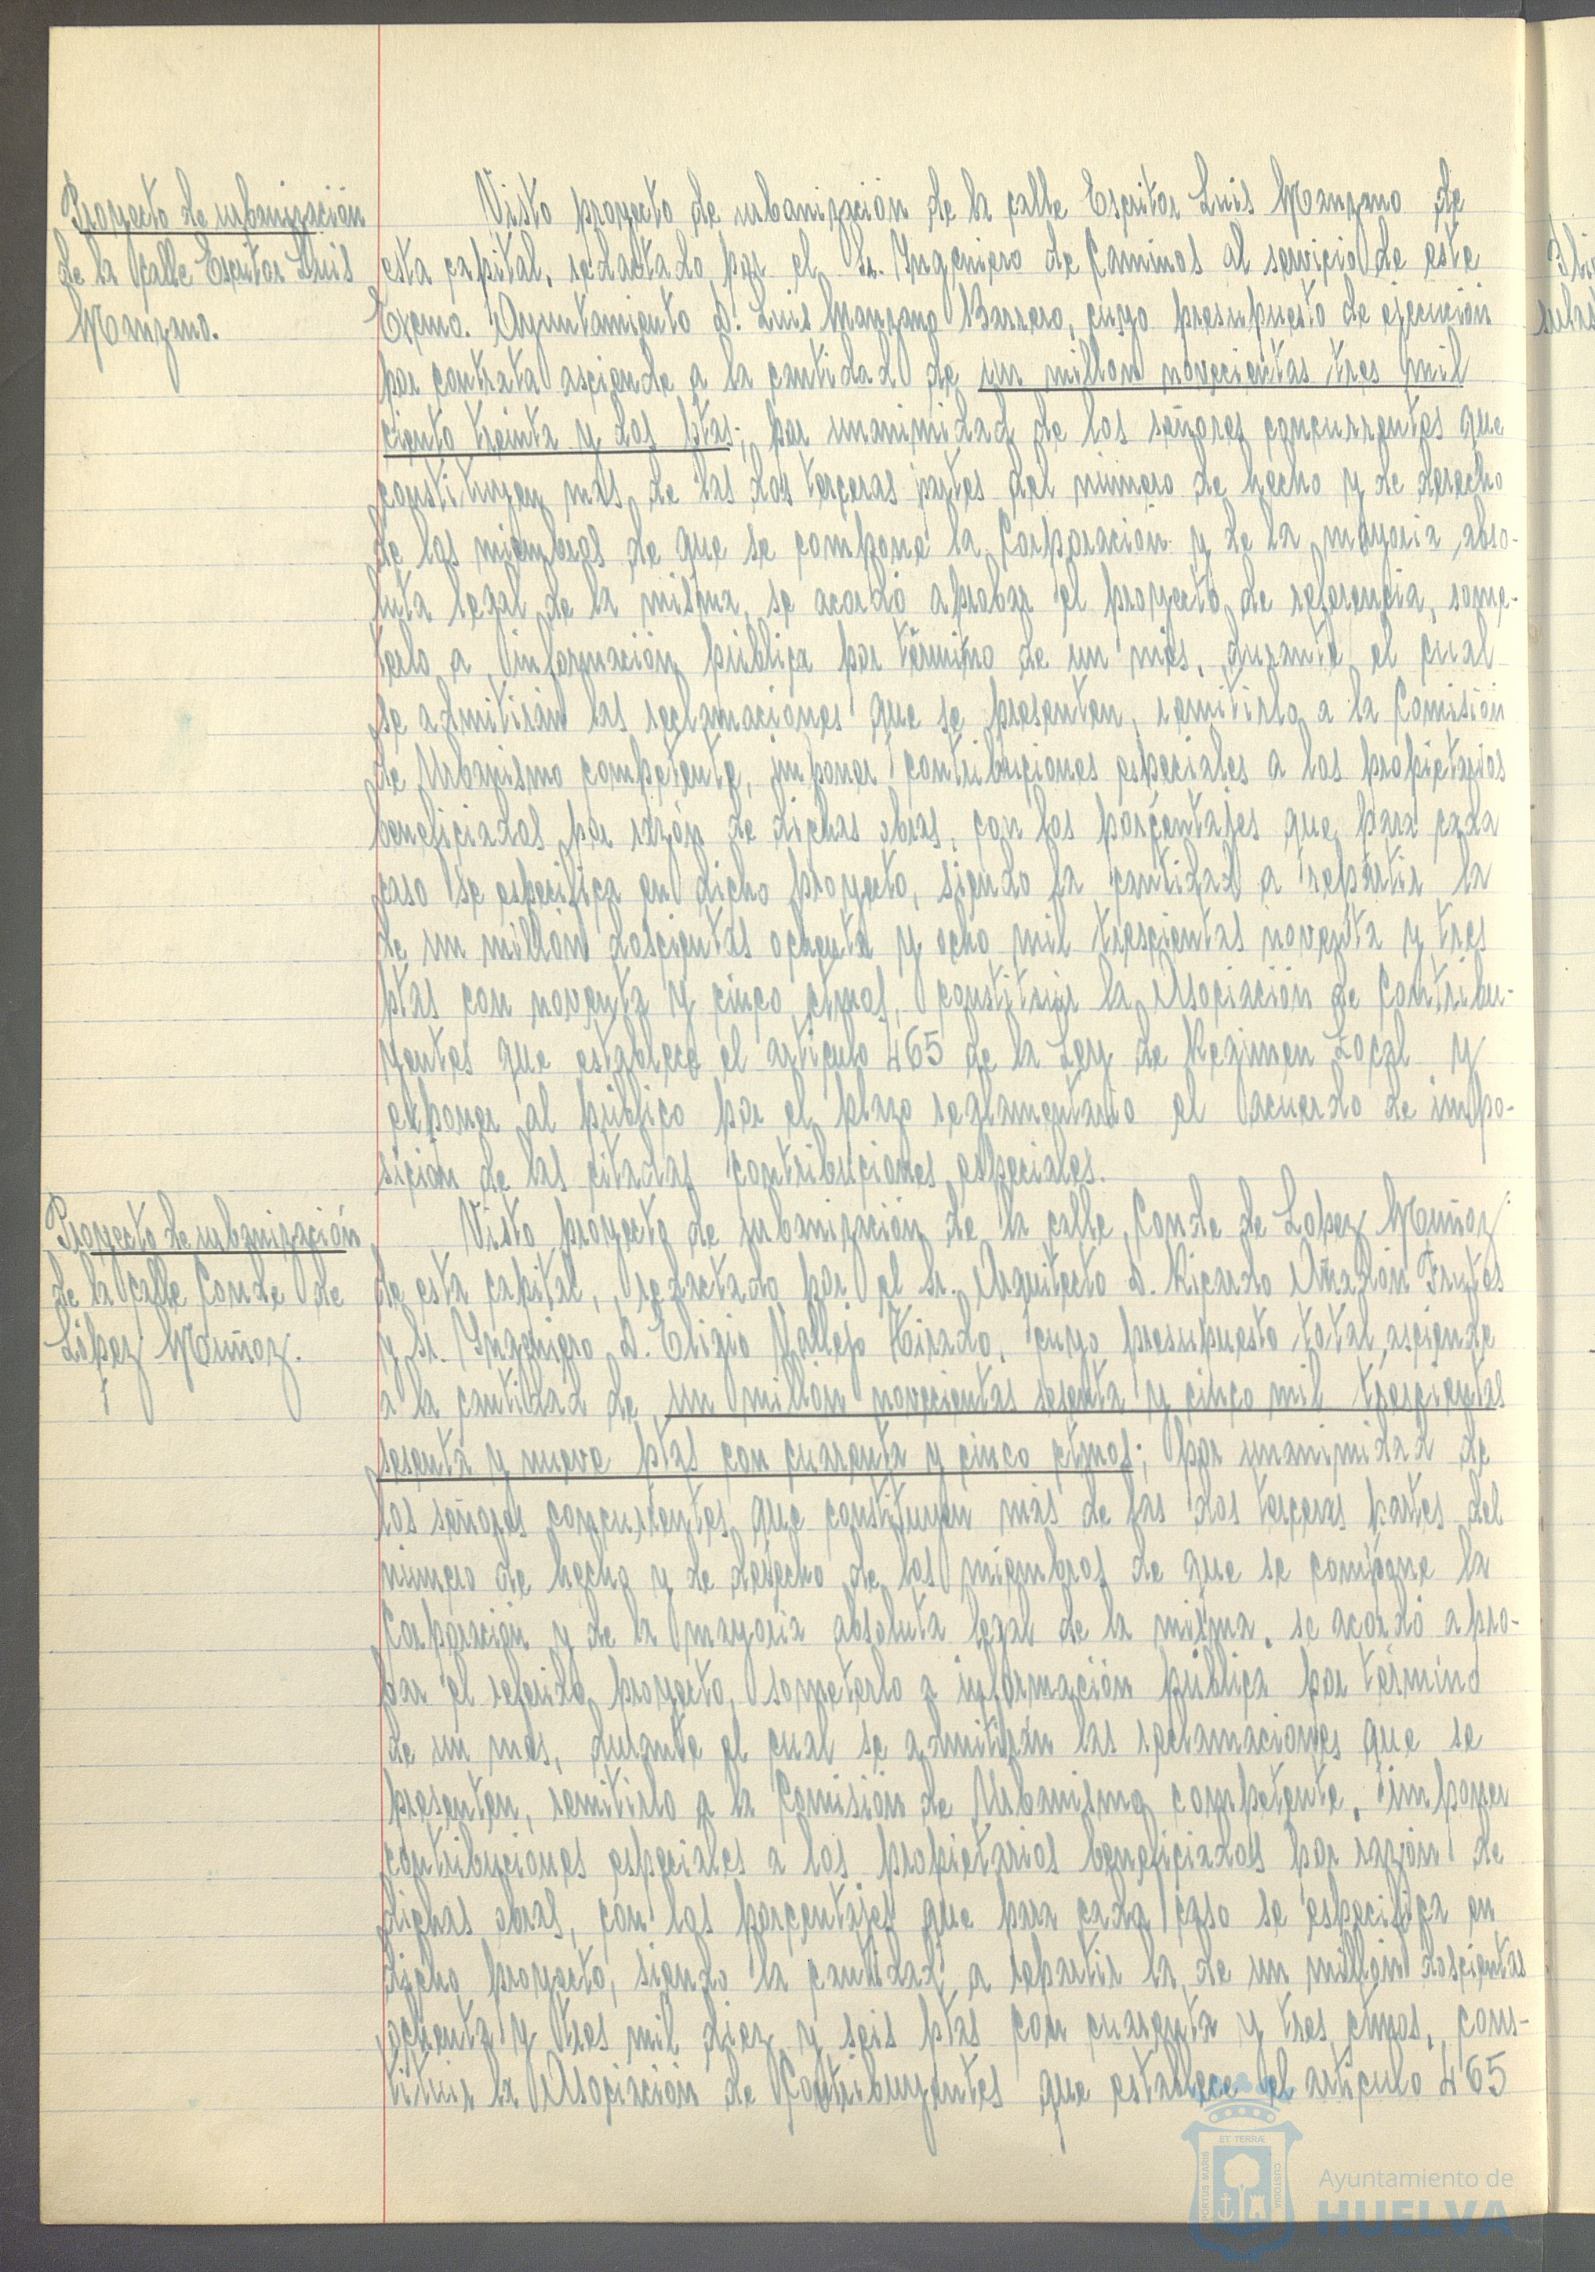 Proyecto de urbanización
de la calle Escritor Luis
Manzano.
Visto proyecto de urbanización de la calle Escritor Luis Manzano de
esta capital, redactado por el Sr. Ingeniero de Caminos al servicio de este
Excmo. Ayuntamiento D. Luis Manzano Barrero, cuyo presupuesto de ejecución
por contrata asciende a la cantidad de un millon novecientas tres mil
ciento treinta y dos ptas; por unanimidad de los señores concurrentes que
constituyen más de las dos terceras partes del número de hecho y de derecho
de los miembros de que se compone la Corporación y de la mayoria abso-
luta legal de la misma, se acordó aprobar el proyecto de referencia, some-
terlo a información pública por término de un mes, durante el cual
se admitirán las reclamaciones que se presenten, remitirlo a la Comisión
de Urbanismo competente, imponer contribuciones especiales a los propietarios
beneficiados por razón de dichas obras, con los porcentajes que para cada
caso se especifica en dicho proyecto, siendo la cantidad a repartir la
de un millón doscientas ochenta y ocho mil trescientas noventa y tres
ptas con noventa y cinco ctmos, constituir la Asociación de Contribu-
yentes que establece el artículo 465 de la Ley de Regimen Local y
exponer al público por el plazo reglamentario el acuerdo de impo-
sición de las citadas contribuciones especiales.
Proyecto de urbanización
de la calle Conde de
López Muñoz.
Visto proyecto de urbanización de la calle Conde de Lopez Muñoz
de esta capital, redactado por el Sr. Arquitecto D. Ricardo Anadón Frutos
y Sr. Ingeniero D. Eligio Vallejo Tirado, cuyo presupuesto total asciende
a la cantidad de un millón novecientas sesenta y cinco mil trescientas
sesenta y nueve ptas con cuarenta y cinco ctmos; por unanimidad de
los señores concurrentes que constituyen más de las dos terceras partes del
número de hecho y de derecho de los miembros de que se compone la
Corporación y de la mayoria absoluta legal de la misma, se acordó apro-
bar el referido proyecto, someterlo a información pública por término
de un mes, durante el cual se admitirán las reclamaciones que se
presenten, remitirlo a la Comisión de Urbanismo competente, imponer
contribuciones especiales a los propietarios beneficiados por razón de
dichas obras, con los porcentajes que para cada caso se especifica en
dicho proyecto, siendo la cantidad a repartir la de un millón doscientas
ochenta y tres mil diez y seis ptas con cuarenta y tres ctmos, cons-
tituir la Asociación de Contribuyentes que establece el artículo 465
PORTUS MARIS ET TERRÆ CUSTODIA
Ayuntamiento de
HUELVA